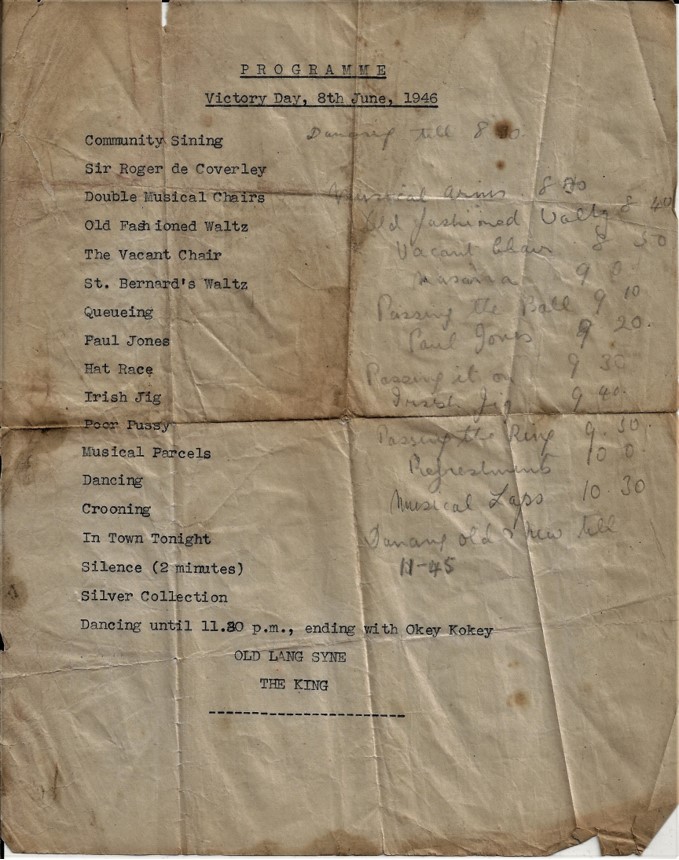 PROGRAMME
Victory Day, 8th June, 1946
Community Sining
Dancing till 8
Sir Roger de Coverley
Double Musical Chairs
Musical Arms. 8
Old Fashioned Waltz
Old fashioned Waltz 8 40
The Vacant Chair
Vacant Chair 8 50
St. Bernard's Waltz
9 0
Queueing
Passing the Ball 9 10
Paul Jones
Paul Jones 9 20.
Hat Race
Passing it on 9 30
Irish Jig
Irish Jig 9 40.
Poor Pussy
Passing the Ring 9.50.
Musical Parcels
Refreshments 10 0
Dancing
Musical Laps 10.30
Crooning
In Town Tonight
Dancing old & New till
Silence (2 minutes)
11-45
Silver Collection
Dancing until 11.30 p.m., ending with Okey Kokey
OLD LANG SYNE
THE KING